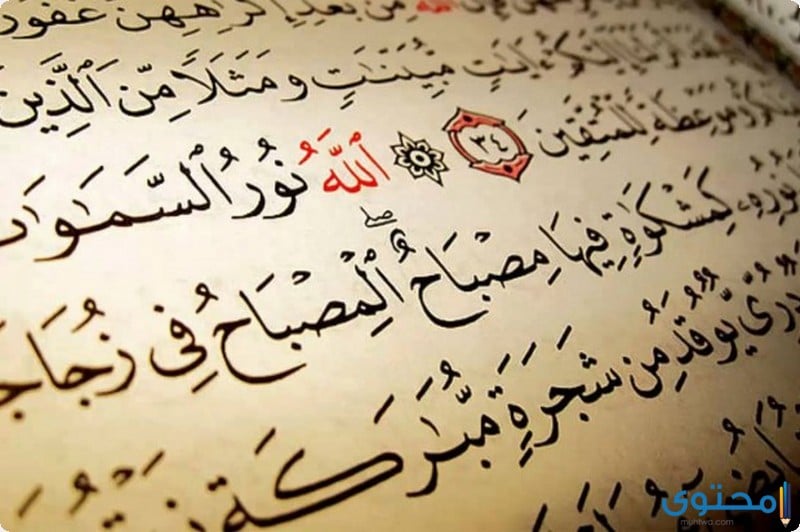 ٱللَّهَ مِنۢ بَعْدِ إِكْرَٰهِهِنَّ غَفُورٌ
إِلَيْكُمْ ءَايَٰتٍ مُّبَيِّنَٰتٍ وَمَثَلًا مِّنَ ٱلَّذِينَ
وَمَوْعِظَةً لِّلْمُتَّقِينَ ٣٤ ۞ ٱللَّهُ نُورُ ٱلسَّمَٰوَٰ
نُورِهِۦ كَمِشْكَوٰةٍ فِيهَا مِصْبَاحٌ ۖ ٱلْمِصْبَاحُ فِى زُجَاجَ
دُرِّىٌّ يُوقَدُ مِن شَجَرَةٍ مُّبَٰرَكَةٍ
محتوى
muhtwa.com